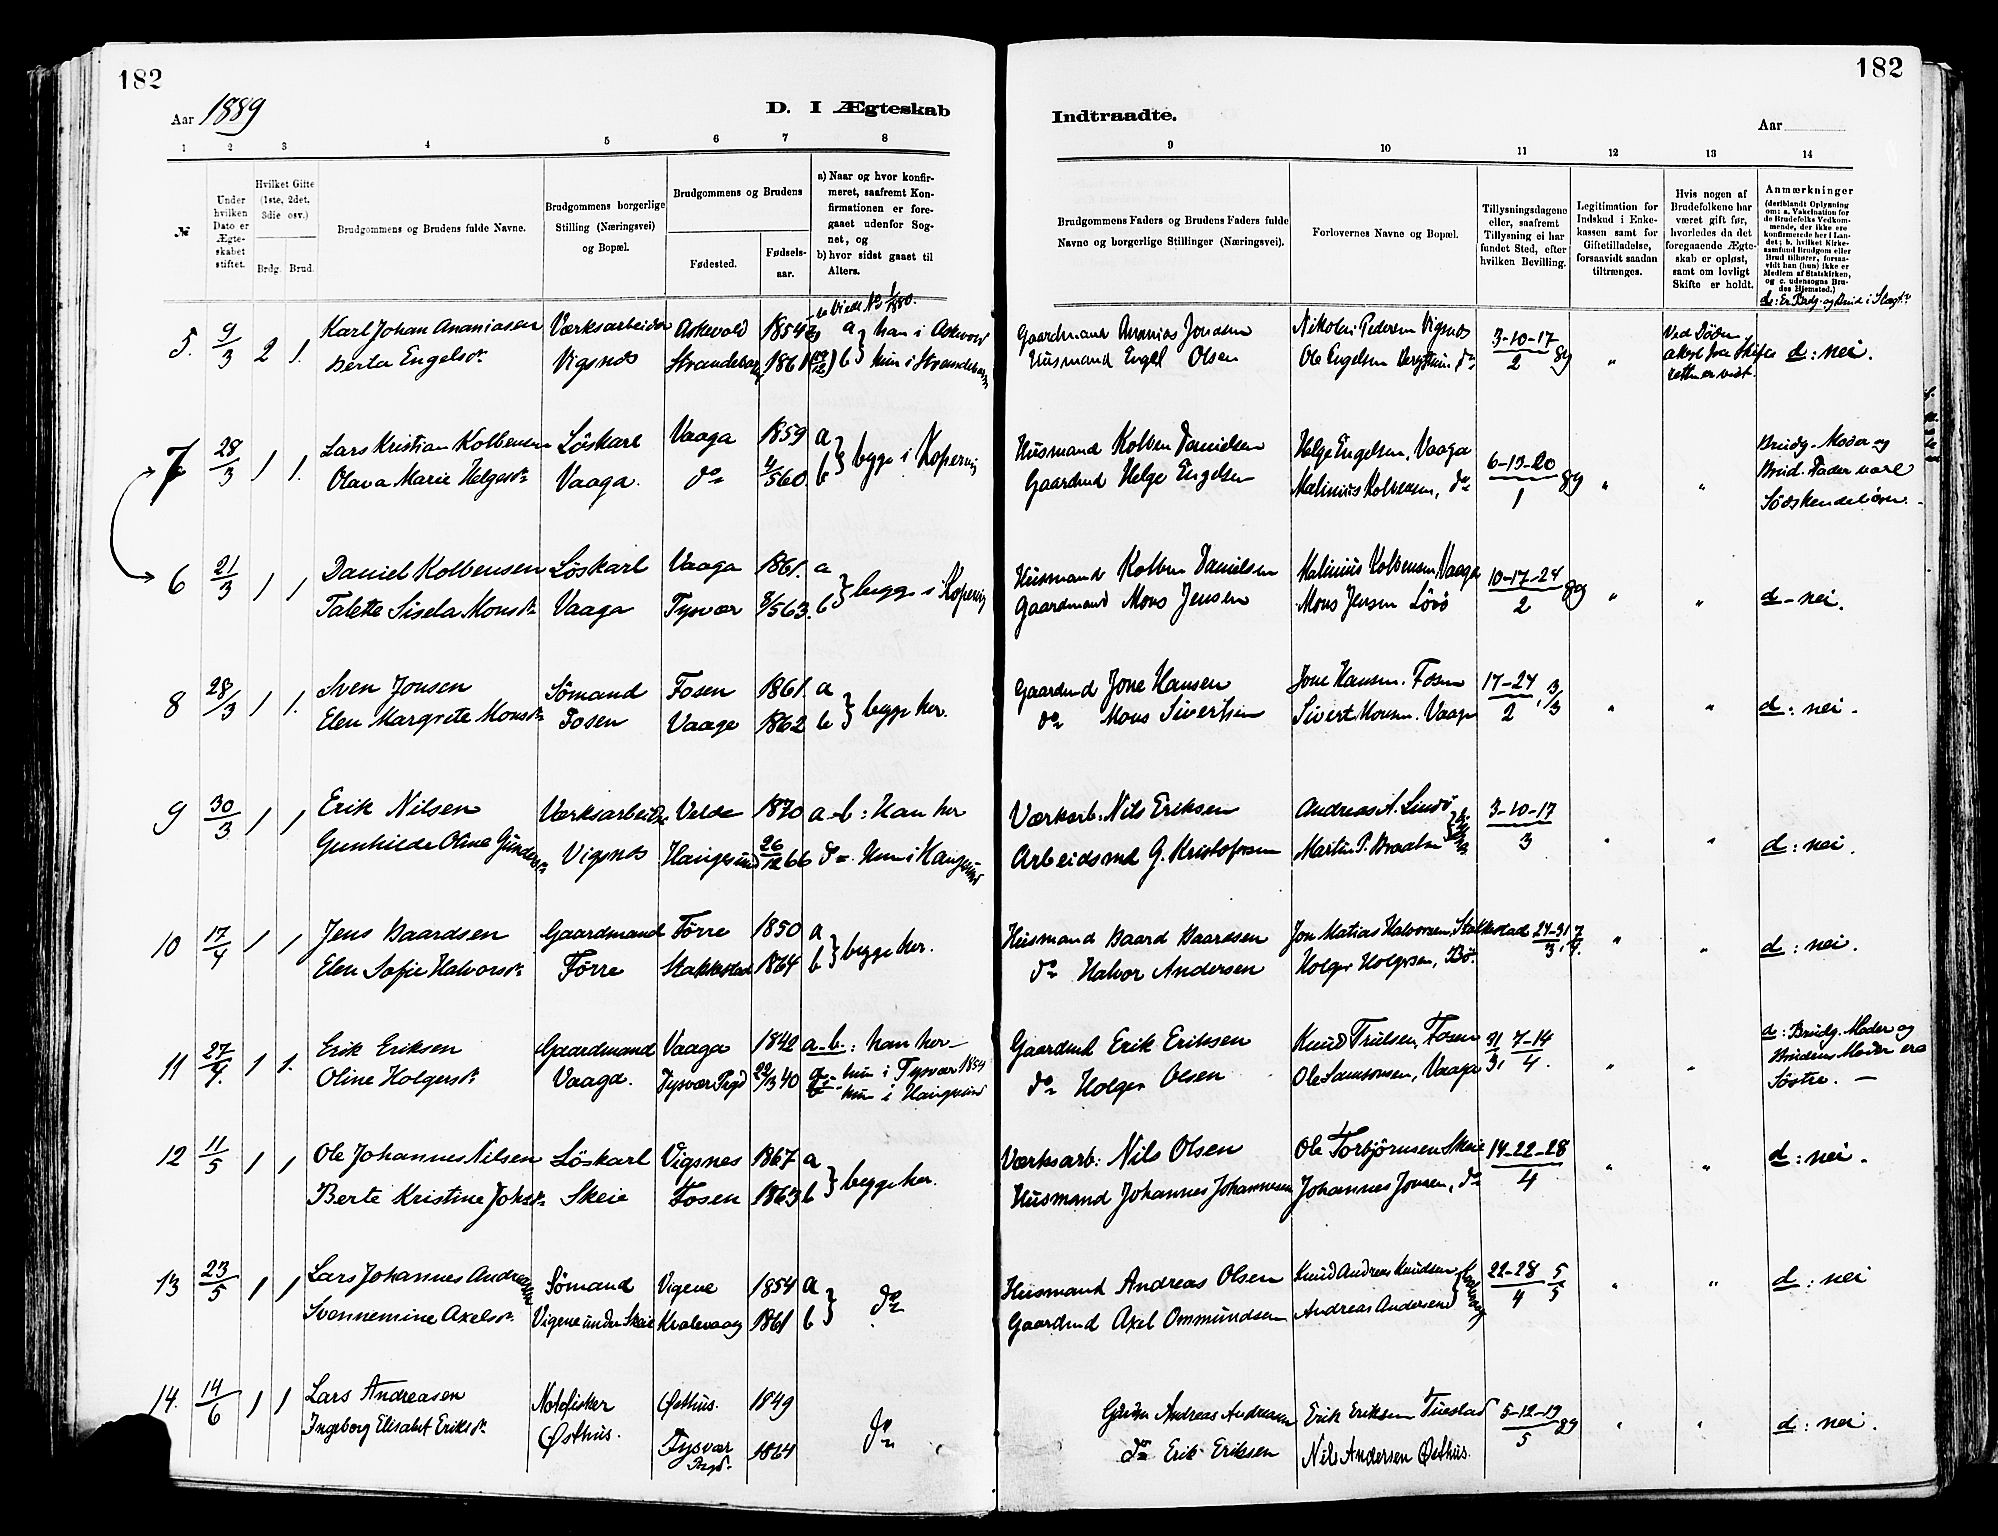 182
182
Aar 1889
D. I Ægteskab
Indtraadte.
Aar
1 2 3 4 5 6 7 8
9 10 11 12 13 14
№
Under hvilken Dato er Ægteskabet stiftet.
Hvilket Gifte (1ste, 2det, 3die osv.)
Brdg. Brud.
Brudgommens og Brudens fulde Navne.
Brudgommens borgerlige Stilling (Næringsvei) og Bopæl.
Brudgommens og Brudens
Fødested.
Fødselsaar.
a) Naar og hvor konfirmeret, saafremt Konfirmationen er foregaaet udenfor Sognet, og
b) hvor sidst gaaet til Alters.
Brudgommens Faders og Brudens Faders fulde Navne og borgerlige Stillinger (Næringsvei).
Forlovernes Navne og Bopæl.
Tillysningsdagene eller, saafremt Tillysning ei har fundet Sted, efter hvilken Bevilling.
Legitimation for Indskud i Enkekassen samt for Giftetilladelse, forsaavidt saadan tiltrænges.
Hvis nogen af Brudefolkene har været gift før, hvorledes da det foregaaende Ægteskab er opløst, samt om lovligt Skifte er holdt.
Anmærkninger
(deriblandt Oplysning om: a. Vakcination for de Brudefolks Vedkommende, der ikke ere konfirmerede her i Landet; b. hvilket Kirkesamfund Brudgom eller Brud tilhører, forsaavidt han (hun) ikke er Medlem af Statskirken, og c. udensogns Brudes Hjemsted.)
d: Er Brdg. og Brud i Slegt?
5. 9/3 2 1. Karl Johan Ananiasen Værksarbeider Askevold 1854 a han i Askevold Gaardmand Ananias Jonsen Nikolai Pedersen Vigsnes 3-10-17
Berta Engelsdr. Vigsnes Strandebarm 1861 b hun i Strandebarm Husmand Engel Olsen Ole Engelsen do 2 89 " d: nei.
7 28/3 1 1. Lars Kristian Kolbensen Löskarl Vaaga 1859 a Husmand Kolben Danielsen Helge Engelsen, Vaaga 6-13-20 Brudg. Moder og
Olava Marie Helgesdr. Vaaga. do 4/5 60. b begge i Kopervig Gaardmd Helge Engelsen Malinius Kolbensen, do 1 89 " " Brud. Fader vare
Södskendebörn.
6 21/3 1 1 Daniel Kolbensen Löskarl Vaaga 1861. a Husmand Kolben Danielsen Malinius Kolbensen Vaaga 10-17-24
Talette Sisela Monsdr. Vaaga Tysvær 8/5 63. b begge i Kopervig Gaardmand Mons Jensen Mons Jensen 2 89 " " d - nei.
8 28/3 1 1. Sven Jonsen Sömand Fosen 1861. a Gaardmd Jone Hansen Jone Hansen. Fosen 17-24, 3/3
Elen Margrete Monsdr. Fosen Vaage 1862 b begge her. do Mons Sivertsen Sivert Monsen. Vaage 2 " " d: nei.
9 30/3 1 1 Erik Nilsen Værksarbeider Velde 1870 a-b: Han her Værkarb. Nils Eriksen Andreas A. 3-10-17
Gunhilde Oline Gundersdr. Vigsnes Haugesund 26/12 66 do Hun i Haugesund Arbeidsmd G. Kristofersen Martin P. Braaten 3 " " d: nei.
10 17/4 1 1 Jens Baardsen Gaardmand Förre 1850 a Husmand Baard Baardsen Jon Matias Halvorsen, Stakkestad 24-31/3, 7/4.
Elen Sofie Halvorsdr. Förre Stakkestad 1864 b begge her. do Halvor Andersen Holger Holgersen, Bö. " " d: nei.
11 27/4. 1 1. Erik Eriksen Gaardmand Vaaga 1842 a-b.: han her- Gaardmd Erik Eriksen Knud Trulsen, Fosen 31/3, 7-14/4. d: Brudg. Moder og
Oline Holgersdr. Vaaga. Tysvær Prgd 22/3 40 a- hun i Tysvær 1854 do Holger Olsen Ole Samsonsen, Vaaga " " Brudens Moder ere
b- hun i Haugesund Söstre. —
12 11/5 1 1 Ole Johannes Nilsen Löskarl Vigsnes 1867 a Værksarb: Nils Olsen Ole Torbjörnsen Skeie 14-22-28
Berte Kristine Johsdr. Skeie Fosen 1863 b begge her. Husmand Johannes Johannesen Johannes Jonsen, do 4 " " d: nei.
13 23/5 1 1 Lars Johannes Andreassen Sömand Vigene 1854 a Husmand Andreas Olsen Knud Andreas Knudsen 22-28/4 5/5
Svennemine Axelsdr. Vigene under Skeie Kvalevaag 1861 b do Gaardmd Axel Ommundsen Andreas Andersen " " d: nei
14. 14/6 1 1 Lars Andreasen Notfisker Østhus. 1849 Andreas Andreasen Erik Eriksen 5-12-19
Ingeborg Elisabet Eriksdr. Østhus. Tysvær Prgd. 1864 do do Erik Eriksen Nils Andersen Østhus. 5 89 " " d: nei.